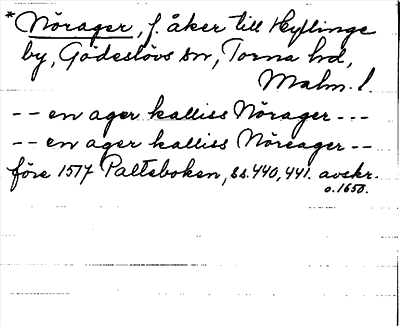 * Nörager, f. åker till Hyllinge
by, Gödeslövs sn, Torna hd,
Malm. l.
-- en ager kalliss Nörager ---
-- en ager kalliss Nöreager --
före 1517 Palteboken, ss. 440, 441. avskr.
o. 1650.